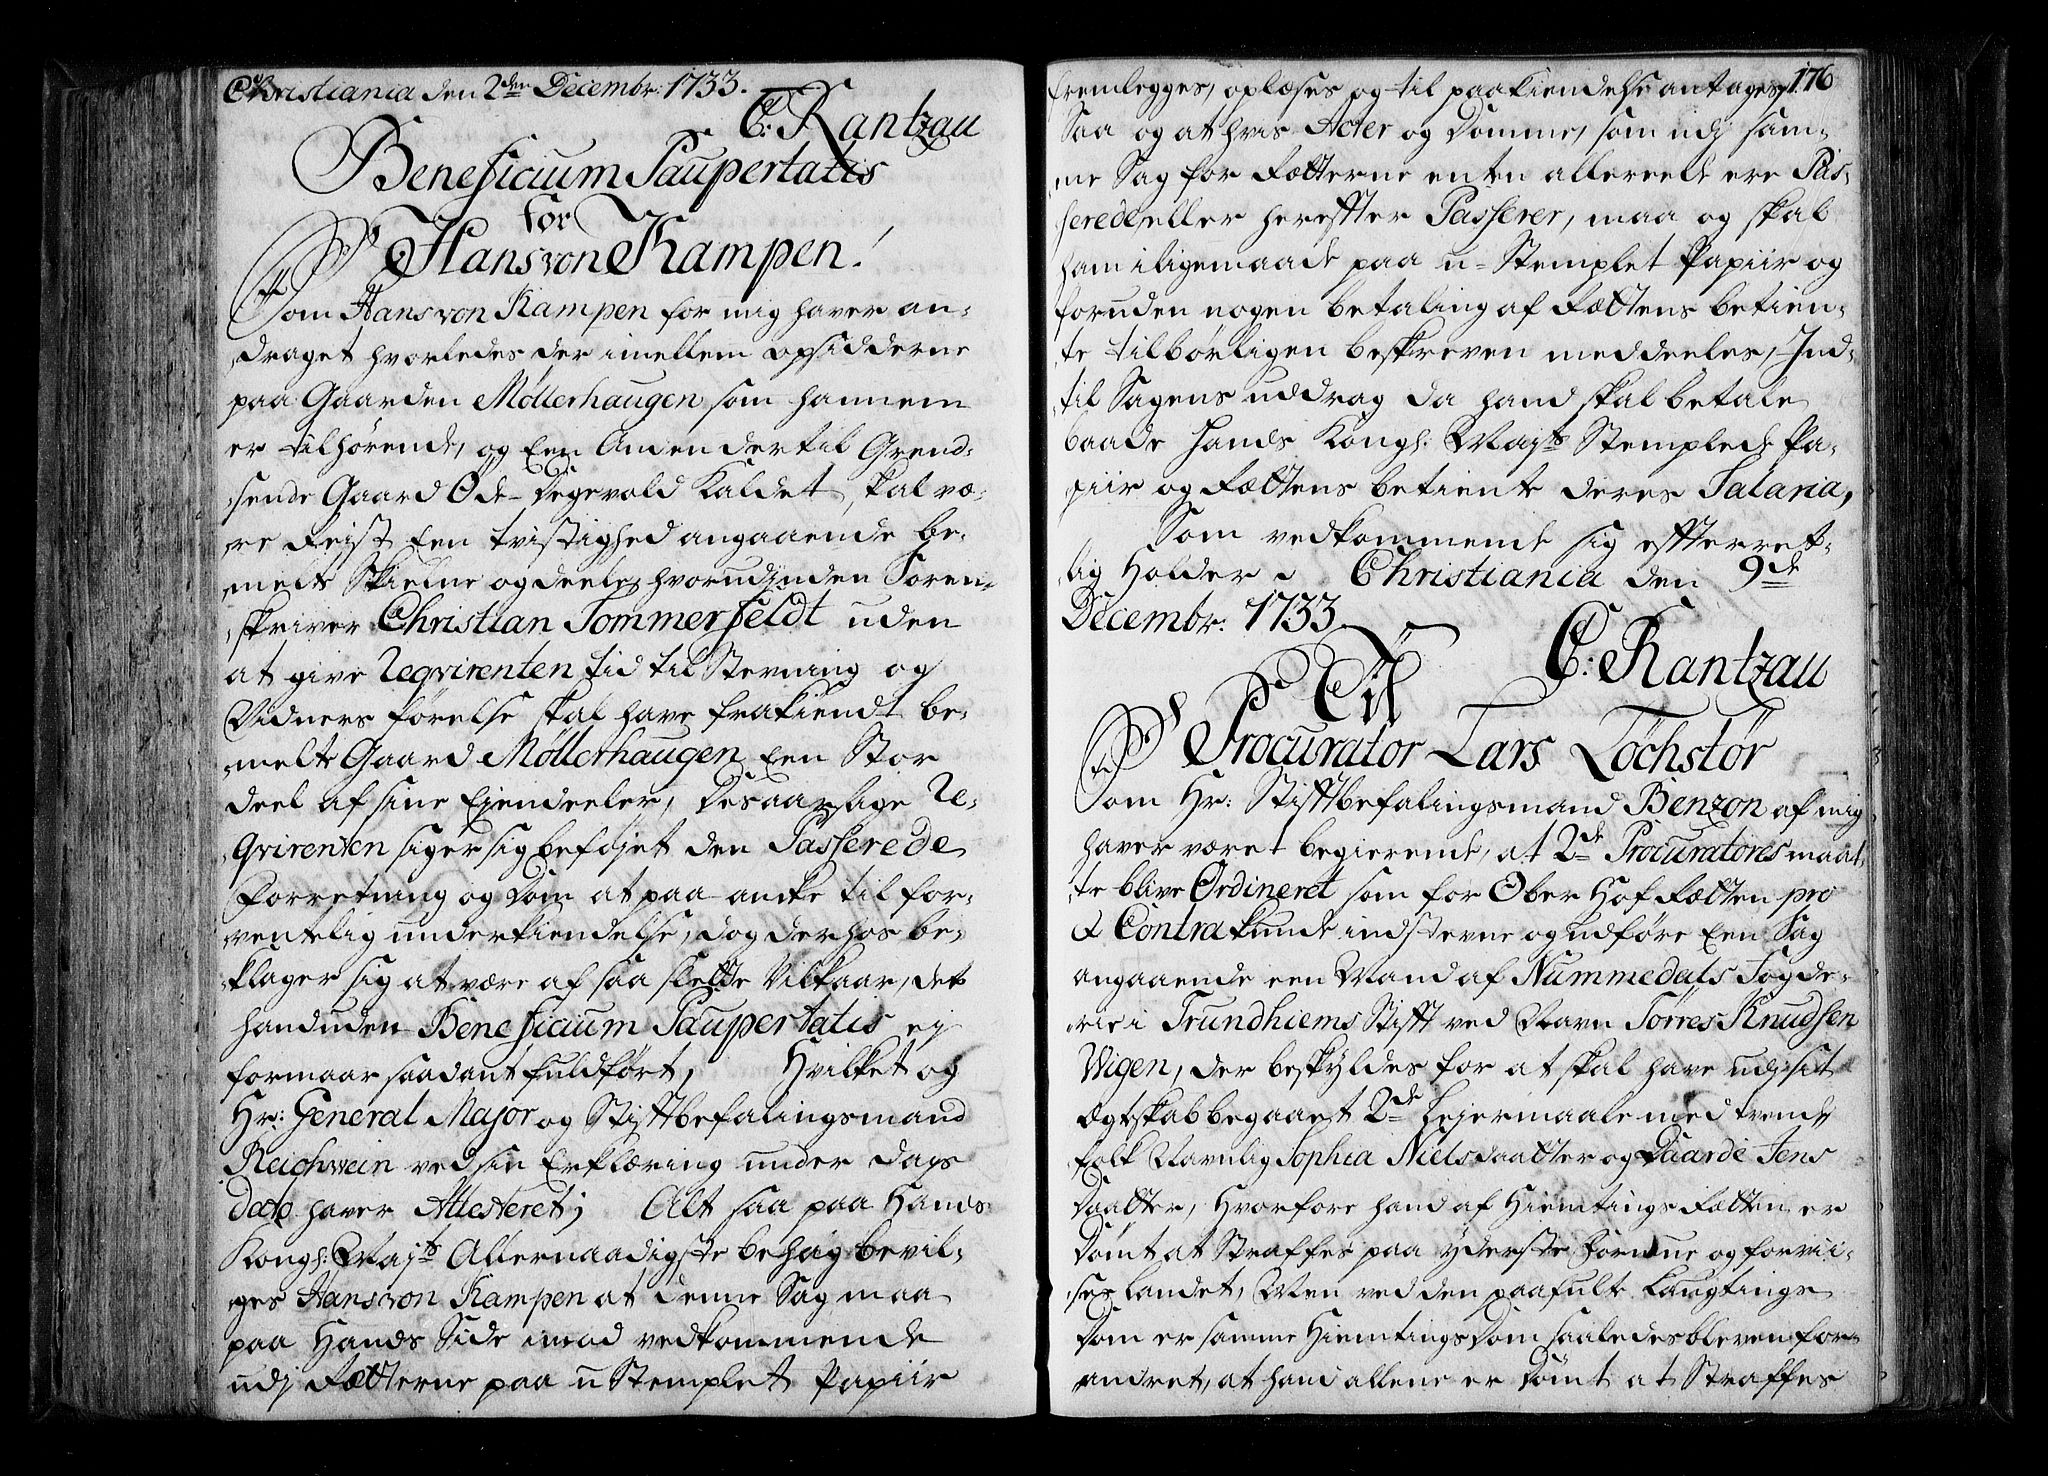 Christiania den 2den Decembr: 1733.
C: Rantzau
Beneficium Paupertatis
for
Hans von Kampen!
Som Hans von Kampen for mig haver an-
draget hvorledes der imellem opsidderne
paa Gaarden Möllerhaugen, som hannem
er tilhørende, og Een Anden dertil Grend-
sende Gaard Öde-Degevold Kaldet, skal væ-
re Rejst Een tvistighed angaaende be-
melte Skielne og deele, hvorudinden Soren-
skriver Christian Sommerfeldt uden
at give Reqvirenten tid til Stevning og
Vidners førelse skal have frakiendt be-
melte Gaard Möllerhaugen Een Stor
deel af sine Ejendeeler, Desaarsage Re-
qvirenten siger sig beføjet den Passerede
Forretning og Dom at paa-ancke til for-
ventelig underkiendelse, dog derhos be-
klager sig at være af saa slette Vilkaar, det
hand uden Beneficium Paupertatis ej
formaar saadant fuldført, Hvilket og
Hr: General Major og Stiftbefalingsmand
Reichwein ved sin Erklæring under Dags
dato haver Attesteret; Alt saa paa Hands
Kongl: Mayts Allernaadigste behag bevil-
ges Hans von Kampen at denne Sag maa
paa Hands Side imod vedkommende
udj Rætterne paa u Stemplet Papiir
176
fremlegges, oplæses og til paakiendelse antages,
Saa og at hvis Acter og Domme, som udj sam-
me Sag for Rætterne enten allereede ere Pas-
serede eller herefter Passerer, maa og skal
ham iligemaade paa u-Stemplet Papiir og
foruden nogen betaling af Rættens betien-
te tilbørligen beskreven meddeeles, Ind-
til Sagens uddrag da hand skal betale
baade Hands Kongl: Mayts Stemplede Pa-
piir og Rættens betiente deres Salaria,
Som vedkommende sig efterret-
lig Holder. Christiania den 9de
Decembr: 1733.
C: Rantzau
Til
Procurator Lars Löchstör
Som Hr: Stiftbefalingsmand Benzon af mig
haver været begierende, at 2de Procuratores maat-
te blive Ordineret som for Ober Hof Rætten pro
& Contra kunde indstevne og udføre Een Sag
angaaende een Mand af Nummedals Fogde-
rie i Trundhiems Stift ved Navn Törres Knudsen
Wigen, der beskyldes for at skal have udj sit
Ægteskab begaaet 2de Lejermaale med tvende
folk Navnlig Sophia Nielsdaatter og Jens
Daatter, Hvorfore hand af Hiemtings Rætten er
Dömt at Straffes paa yderste formue og forvii-
ses landet, Men ved den paafulte Laugtings
Dom er samme Hiemtings Dom saaledes bleven for-
andret, at hand allene er Dömt at Straffes